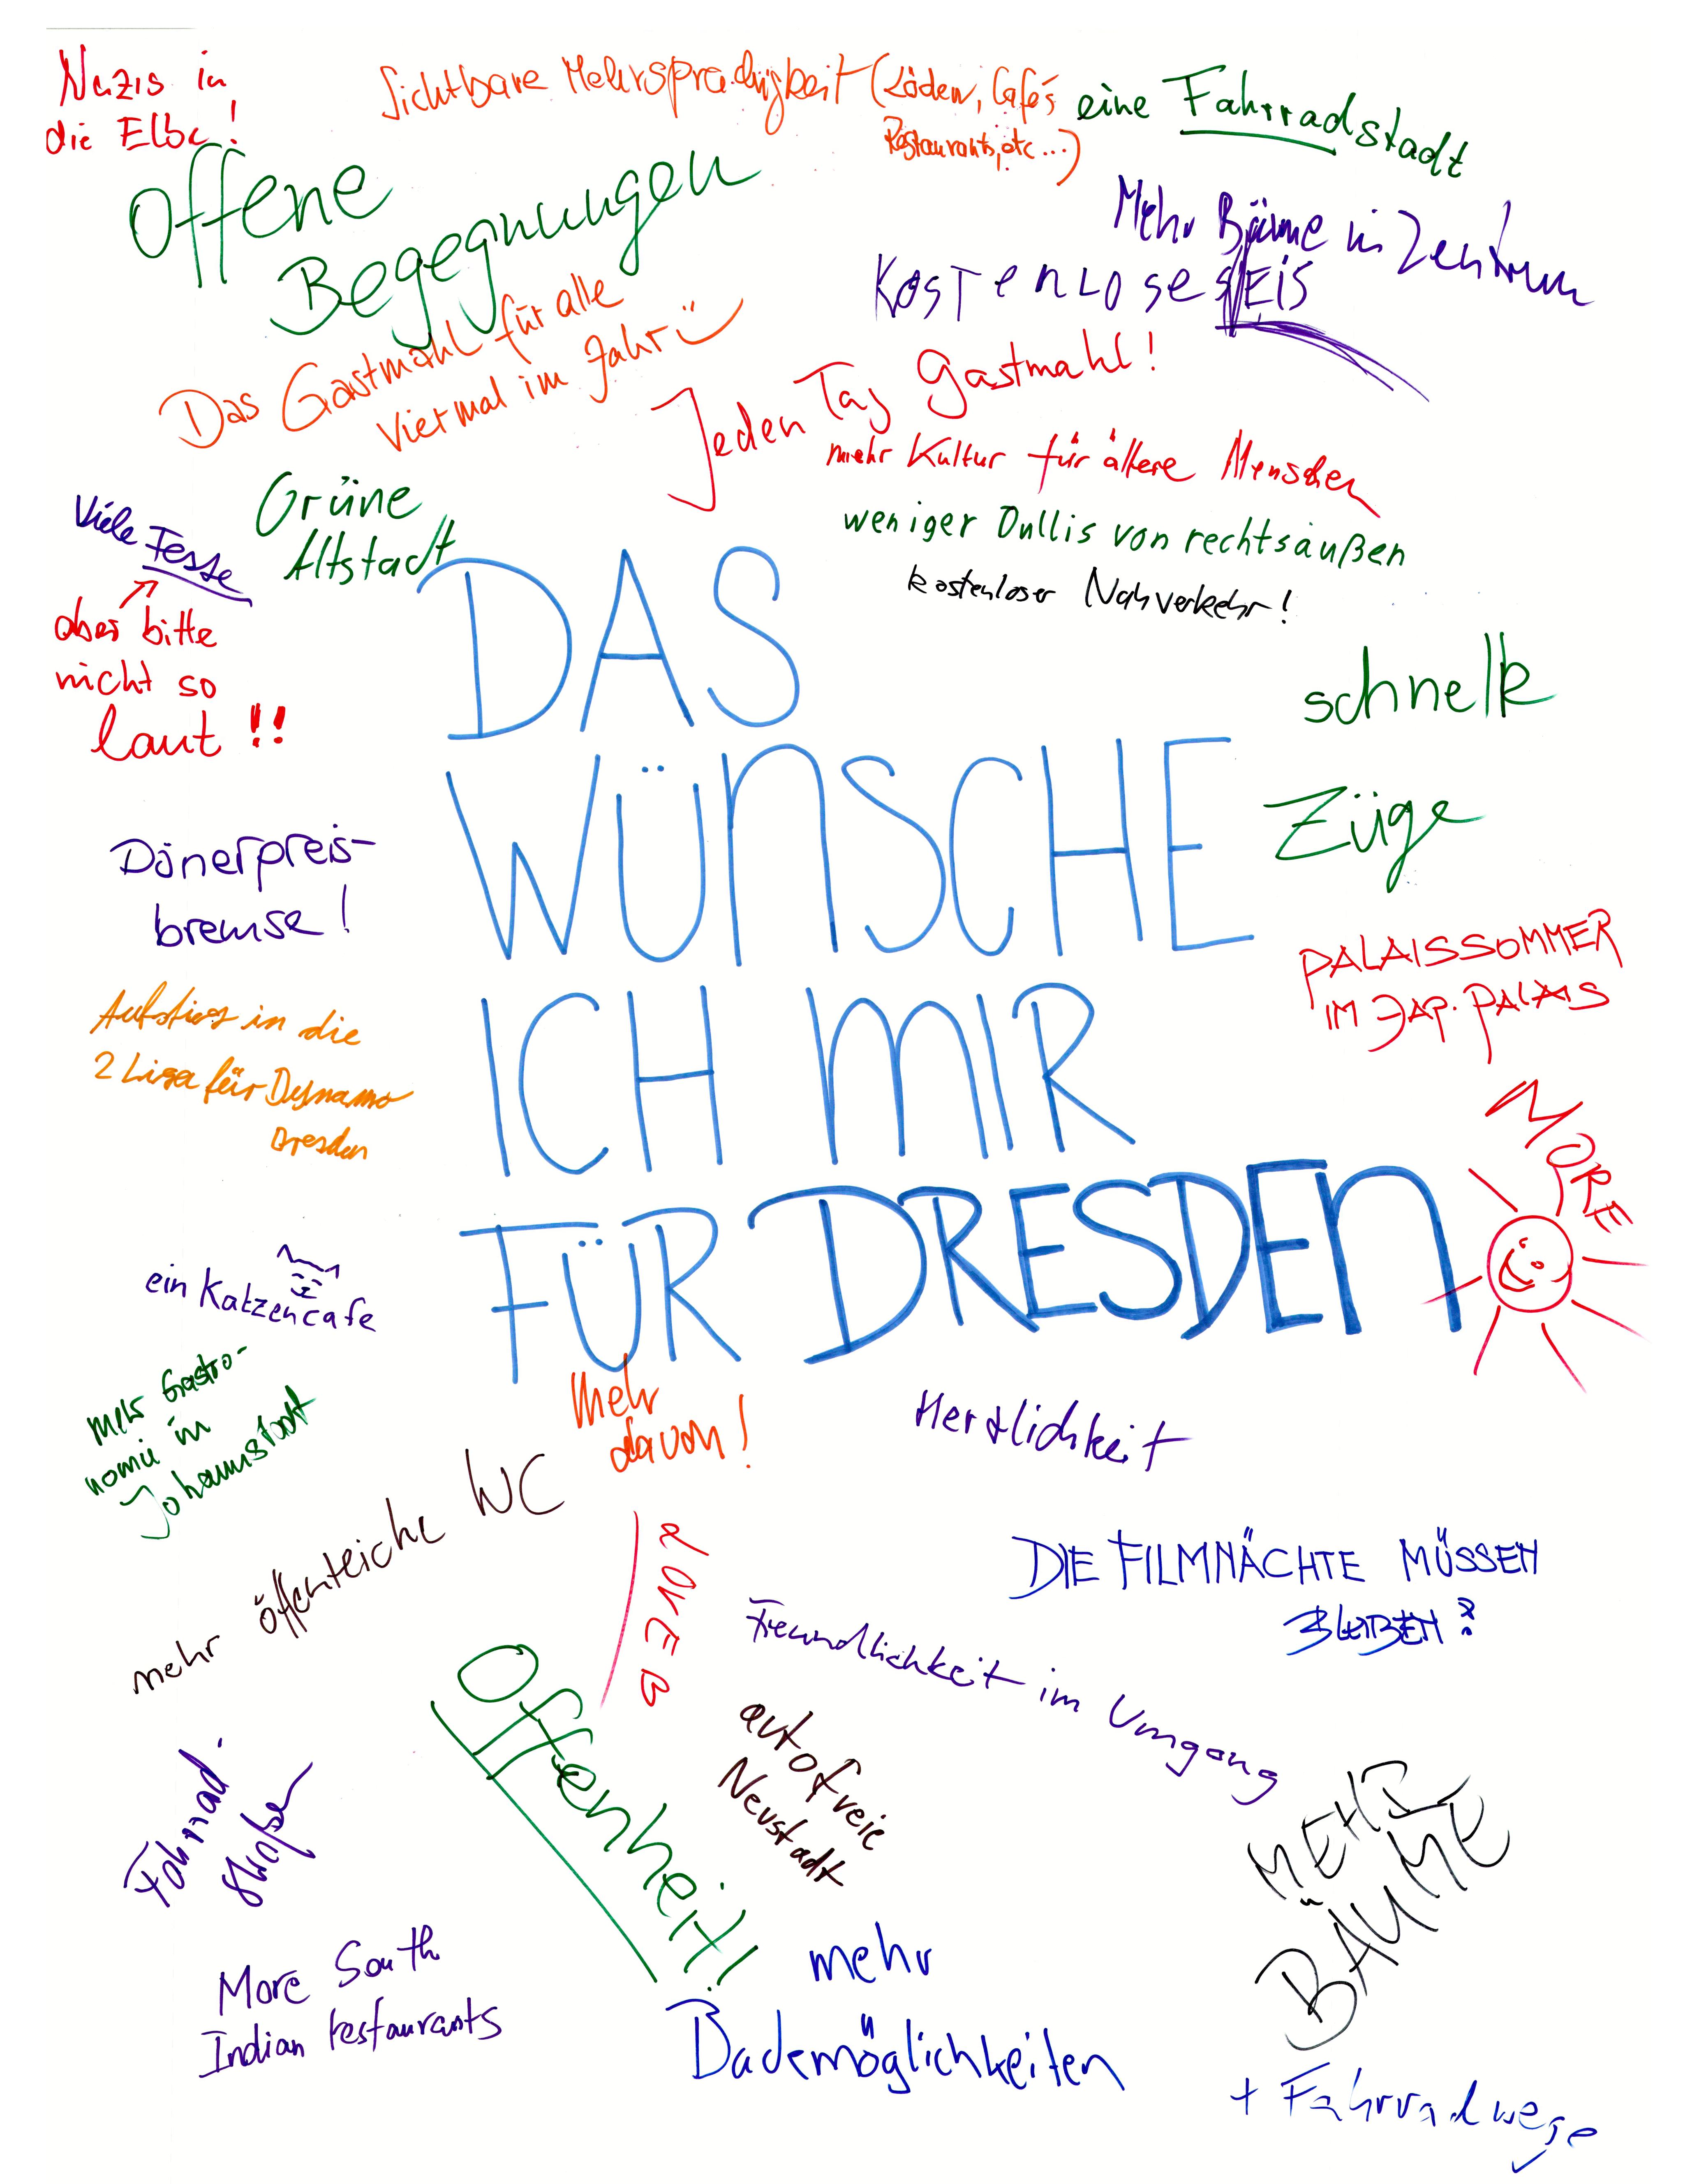 Nazis in
die Elbe!
Sichtbare Mehrsprachigkeit (Läden, Cafés
Restaurants, etc...)
eine Fahrradstadt
Offene
Begegnungen
Mehr Bäume in Zentrum
KOSTENLOSES EIS
Das Gastmahl für alle
viermal im Jahr
Jeden Tag Gastmahl!
mehr Kultur für ältere Menschen
weniger Dullis von rechtsaußen
kostenloser Nahverkehr!
Viele Feste
aber bitte
nicht so
laut !!
Grüne
Altstadt
DAS
WÜNSCHE
ICH MIR
FÜR DRESDEN
schnelle
Züge
Dönerpreis-
bremse!
PALAISSOMMER
IM JAP. PALAIS
Aufstieg in die
2 Liga für Dynamo
Dresden
MORE
ein Katzencafe
mehr Gastro-
nomie in
Johannstadt
Mehr
davon!
Herzlichkeit
mehr öffentliche WC
DIE FILMNÄCHTE MÜSSEN
BLEIBEN!
Freundlichkeit im Umgang
Offenheit!
autofreie
Neustadt
Fahrrad-
straße
MEHR
BÄUME
+ Fahrradwege
More South
Indian restaurants
mehr
Bademöglichkeiten